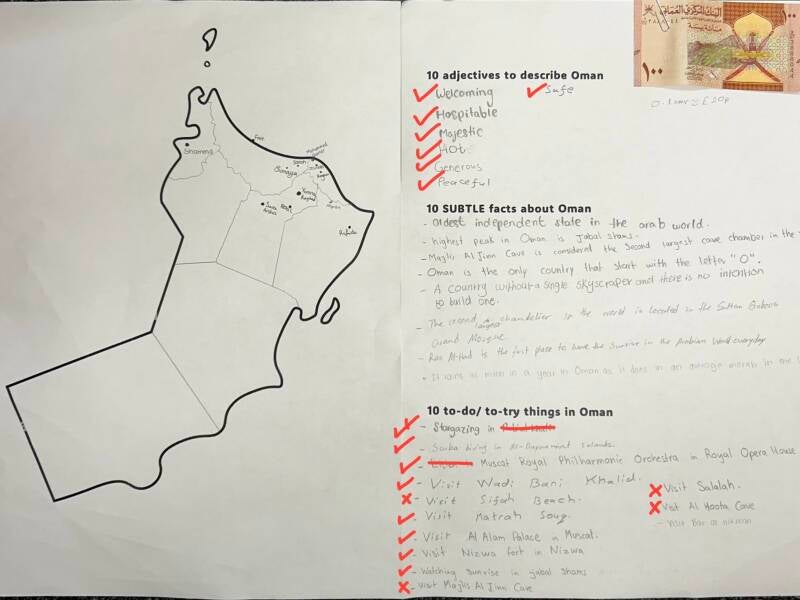 البنك المركزي العماني
١٠٠
مائة بيسة
١٠٠
10 adjectives to describe Oman
Welcoming
Safe
Hospitable
Majestic
Hot
Generous
Peaceful
10 SUBTLE facts about Oman
- Oldest independent state in the arab world.
- highest peak in Oman is Jabal shams.
- Majlis Al Jinn Cave is considerd the second largest cave chamber in the
- Oman is the only country that start with the letter "O".
- A country without a single skyscraper and there is no intention
to build one.
- The second largest chandelier in the world is located in the Sultan Qaboos
Grand Mosque.
- Ras Al Had is the first place to have the sunrise in the Arabian World everyday
- It rains as much in a year in Oman as it does in an average month in the
10 to-do/ to-try things in Oman
- Stargazing in
- Scuba diving in Al-Daymaniat Islands.
Muscat Royal Philharmonic Orchestra in Royal Opera House
- Visit Wadi Bani Khalid.
- Visit Sifah Beach.
- Visit Matrah Souq.
- Visit Al Alam Palace in Muscat.
- Visit Nizwa fort in Nizwa
- Watching sunrise in jabal shams
- Visit Majlis Al Jinn Cave
Visit Salalah.
Visit Al Hoota Cave
- Visit Bar al
Shinas